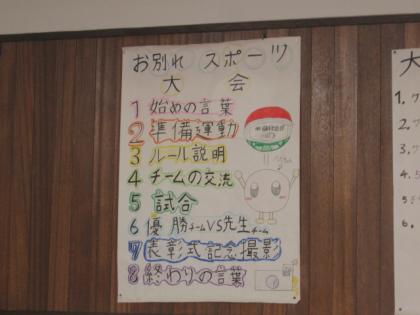 お別れ スポーツ
大 会
1 始めの言葉
2 準備運動
3 ルール説明
4 チームの交流
5 試合
6 優勝チームVS先生チーム
7 表彰式記念撮影
8 終わりの言葉
大
1.
2.
3.
4.
5
6